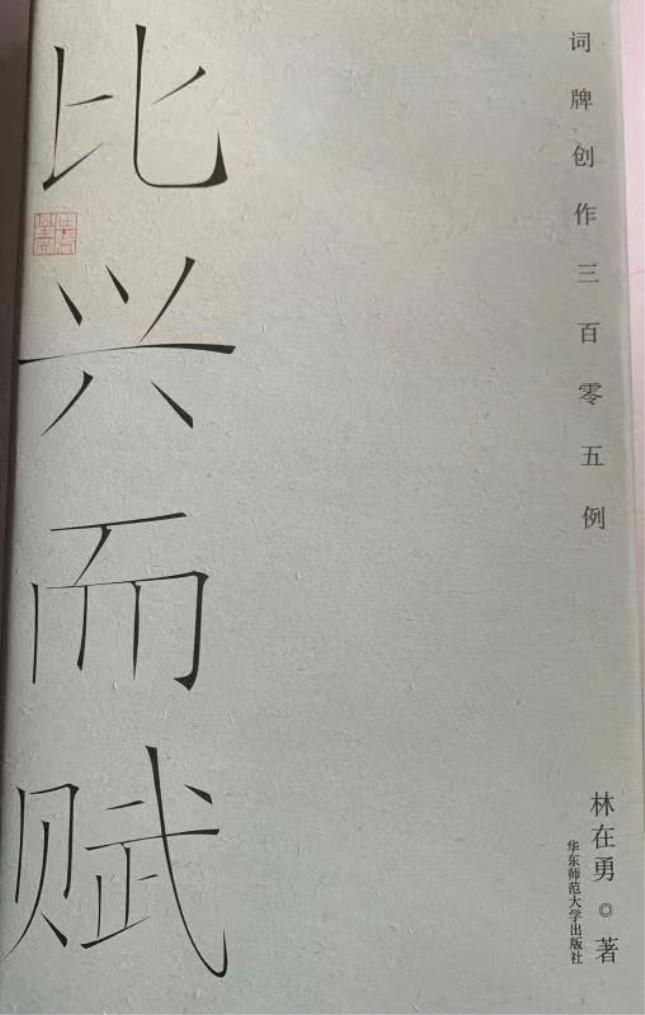 比兴而赋
词牌创作三百零五例
林在勇◎著
华东师范大学出版社